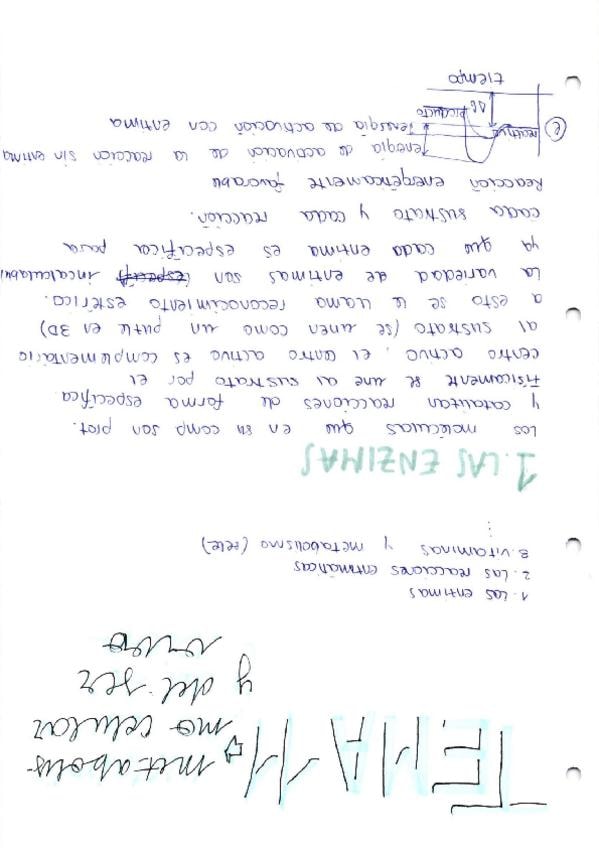 TEMA 11 ⇨ metabolis-
mo celular
y del ser
vivo
1. Las enzimas
2. Las reacciones enzimáticas
3. vitaminas y metabolismo (rele)
⋮
1. LAS ENZIMAS
Los moléculas que en su comp son prot.
y catalizan reacciones de forma específica.
Físicamente se une al sustrato por el
centro activo, el centro activo es complementario
al sustrato (se unen como un puzle en 3D)
a esto se le llama reconocimiento estérico.
La variedad de enzimas son incalculables
ya que cada enzima es específica para
cada sustrato y cada reacción.
Reacción energéticamente favorable
energía de activación de la reacción sin enzima
energía de activación con enzima
e
reactivo
producto
ΔG
tiempo